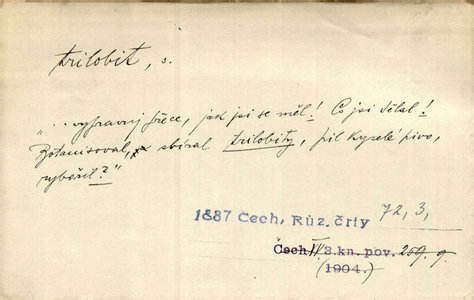 trilobit, s.
„...vypravuj přece, jak jsi se měl! Co jsi dělal!
Botanisoval, sbíral trilobity, pil kyselé pivo,
rybařil?"
1887 Čech, Růz. črty 72, 3,
Čech IV. 3. kn. pov. 209. 9.
(1904.)